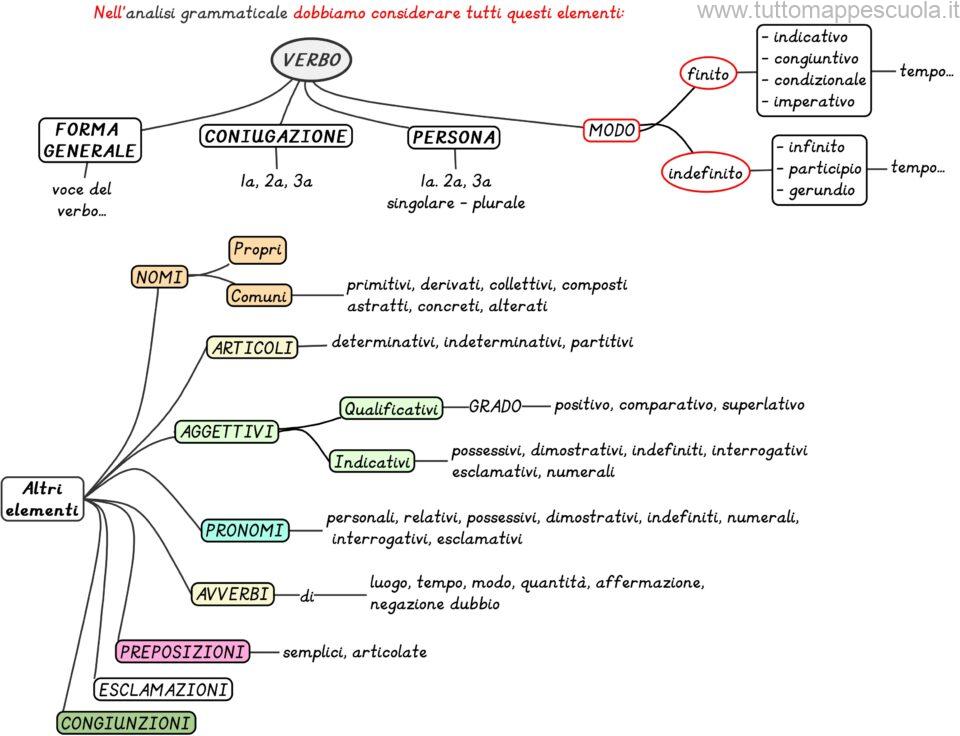 www.tuttomappescuola.it
Nell'analisi grammaticale dobbiamo considerare tutti questi elementi:
VERBO
FORMA
GENERALE
voce del
verbo...
CONIUGAZIONE
1a, 2a, 3a
PERSONA
1a. 2a, 3a
singolare - plurale
MODO
finito
- indicativo
- congiuntivo
- condizionale
- imperativo
tempo...
indefinito
- infinito
- participio
- gerundio
tempo...
Altri
elementi
NOMI
Propri
Comuni
primitivi, derivati, collettivi, composti
astratti, concreti, alterati
ARTICOLI
determinativi, indeterminativi, partitivi
AGGETTIVI
Qualificativi
GRADO
positivo, comparativo, superlativo
Indicativi
possessivi, dimostrativi, indefiniti, interrogativi
esclamativi, numerali
PRONOMI
personali, relativi, possessivi, dimostrativi, indefiniti, numerali,
interrogativi, esclamativi
AVVERBI
di
luogo, tempo, modo, quantità, affermazione,
negazione dubbio
PREPOSIZIONI
semplici, articolate
ESCLAMAZIONI
CONGIUNZIONI